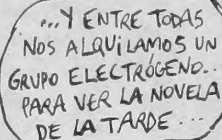 ...Y ENTRE TODAS
NOS ALQUiLAMOS UN
GRUPO ELECTRÓGENO..
PARA VER LA NOVELA
DE LA TARDE...